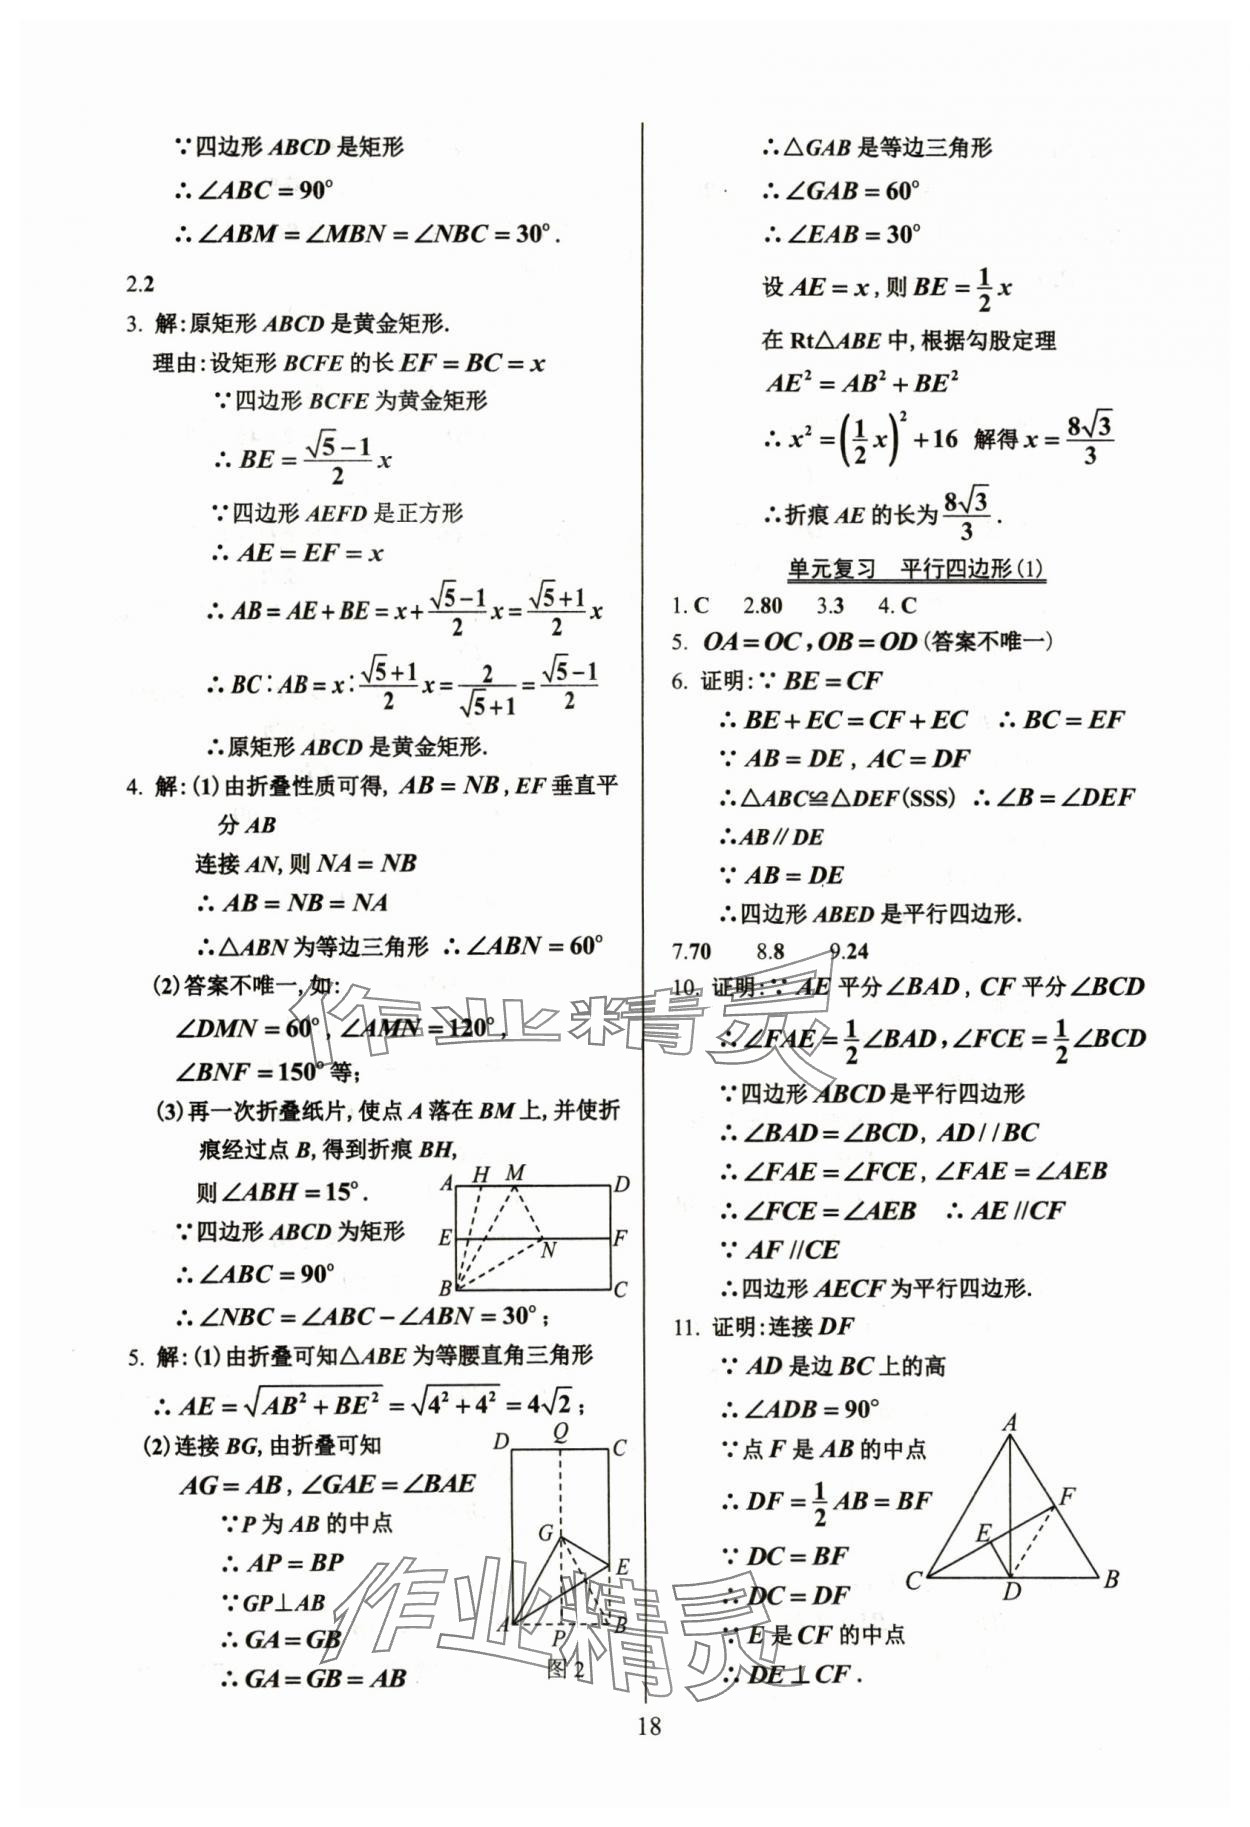 ∵四边形 ABCD 是矩形
∴∠ABC=90°
∴∠ABM=∠MBN=∠NBC=30°.
2.2
3. 解:原矩形 ABCD 是黄金矩形.
理由:设矩形 BCFE 的长 EF=BC=x
∵四边形 BCFE 为黄金矩形
∴BE=\frac{\sqrt{5}-1}{2}x
∵四边形 AEFD 是正方形
∴AE=EF=x
∴AB=AE+BE=x+\frac{\sqrt{5}-1}{2}x=\frac{\sqrt{5}+1}{2}x
∴BC∶AB=x∶\frac{\sqrt{5}+1}{2}x=\frac{2}{\sqrt{5}+1}=\frac{\sqrt{5}-1}{2}
∴原矩形 ABCD 是黄金矩形.
4. 解:(1)由折叠性质可得, AB=NB,EF 垂直平
分 AB
连接 AN,则 NA=NB
∴AB=NB=NA
∴△ABN 为等边三角形 ∴∠ABN=60°
(2)答案不唯一,如:
∠DMN=60°,∠AMN=120°,
∠BNF=150°等;
(3)再一次折叠纸片,使点 A 落在 BM 上,并使折
痕经过点 B,得到折痕 BH,
则∠ABH=15°.
∵四边形 ABCD 为矩形
∴∠ABC=90°
∴∠NBC=∠ABC-∠ABN=30°;
A H M D
E N F
B C
5. 解:(1)由折叠可知△ABE 为等腰直角三角形
∴AE=\sqrt{AB²+BE²}=\sqrt{4²+4²}=4\sqrt{2};
(2)连接 BG,由折叠可知
AG=AB,∠GAE=∠BAE
∵P 为 AB 的中点
∴AP=BP
∵GP⊥AB
∴GA=GB
∴GA=GB=AB
D Q C
G
E
A P B
图 2
∴△GAB 是等边三角形
∴∠GAB=60°
∴∠EAB=30°
设 AE=x,则 BE=\frac{1}{2}x
在 Rt△ABE 中,根据勾股定理
AE²=AB²+BE²
∴x²=(\frac{1}{2}x)²+16 解得 x=\frac{8\sqrt{3}}{3}
∴折痕 AE 的长为\frac{8\sqrt{3}}{3}.
单元复习 平行四边形(1)
1.C 2.80 3.3 4.C
5. OA=OC,OB=OD(答案不唯一)
6. 证明:∵BE=CF
∴BE+EC=CF+EC ∴BC=EF
∵AB=DE, AC=DF
∴△ABC≌△DEF(SSS) ∴∠B=∠DEF
∴AB∥DE
∵AB=DE
∴四边形 ABED 是平行四边形.
7.70 8.8 9.24
10. 证明:∵AE 平分∠BAD, CF 平分∠BCD
∴∠FAE=\frac{1}{2}∠BAD,∠FCE=\frac{1}{2}∠BCD
∵四边形 ABCD 是平行四边形
∴∠BAD=∠BCD, AD//BC
∴∠FAE=∠FCE,∠FAE=∠AEB
∴∠FCE=∠AEB ∴AE//CF
∵AF//CE
∴四边形 AECF 为平行四边形.
11. 证明:连接 DF
∵AD 是边 BC 上的高
∴∠ADB=90°
∵点 F 是 AB 的中点
∴DF=\frac{1}{2}AB=BF
∵DC=BF
∴DC=DF
∵E 是 CF 的中点
∴DE⊥CF.
A
F
E
C D B
作业精灵
作业精灵
18